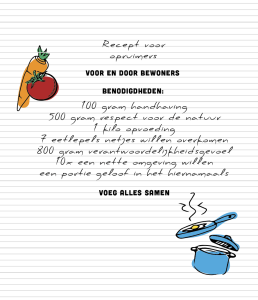 Recept voor
opruimers
VOOR EN DOOR BEWONERS
BENODIGDHEDEN:
100 gram handhaving
500 gram respect voor de natuur
1 kilo opvoeding
7 eetlepels netjes willen overkomen
800 gram verantwoordelijkheidsgevoel
10x een nette omgeving willen
een portie geloof in het hiernamaals
VOEG ALLES SAMEN